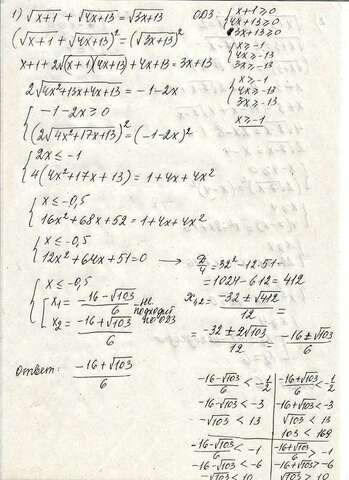 1) √x+1 + √4x+13 = √3x+13   ОДЗ: { x+1 ≥ 0
4x+13 ≥ 0
3x+13 ≥ 0
(√x+1 + √4x+13)² = (√3x+13)²
{ x ≥ -1
4x ≥ -13
3x ≥ -13
x+1+2√(x+1)(4x+13) + 4x+13 = 3x+13
{ x ≥ -1
4x ≥ -13
3x ≥ -13
x ≥ -1
2√4x²+13x+4x+13 = -1-2x
{ -1-2x ≥ 0
(2√4x²+17x+13)² = (-1-2x)²
{ 2x ≤ -1
4(4x²+17x+13) = 1+4x+4x²
{ x ≤ -0,5
16x²+68x+52 = 1+4x+4x²
{ x ≤ -0,5
12x²+64x+51=0 → D/4 = 32²-12·51=
= 1024-612 = 412
{ x ≤ -0,5
[ x₁ = (-16-√103)/6 - не подходит по ОДЗ
x₂ = (-16+√103)/6
x₁,₂ = (-32 ± √412)/12 =
= (-32 ± 2√103)/12 = (-16 ± √103)/6
Ответ: (-16+√103)/6
(-16-√103)/6 < -1/2 | (-16+√103)/6 < -1/2
-16-√103 < -3 | -16+√103 < -3
-√103 < 13 | √103 < 13
103 < 169
(-16-√103)/6 < -1 | (-16+√103)/6 > -1
-16-√103 < -6 | -16+√103 > -6
-√103 < 10 | √103 > 10